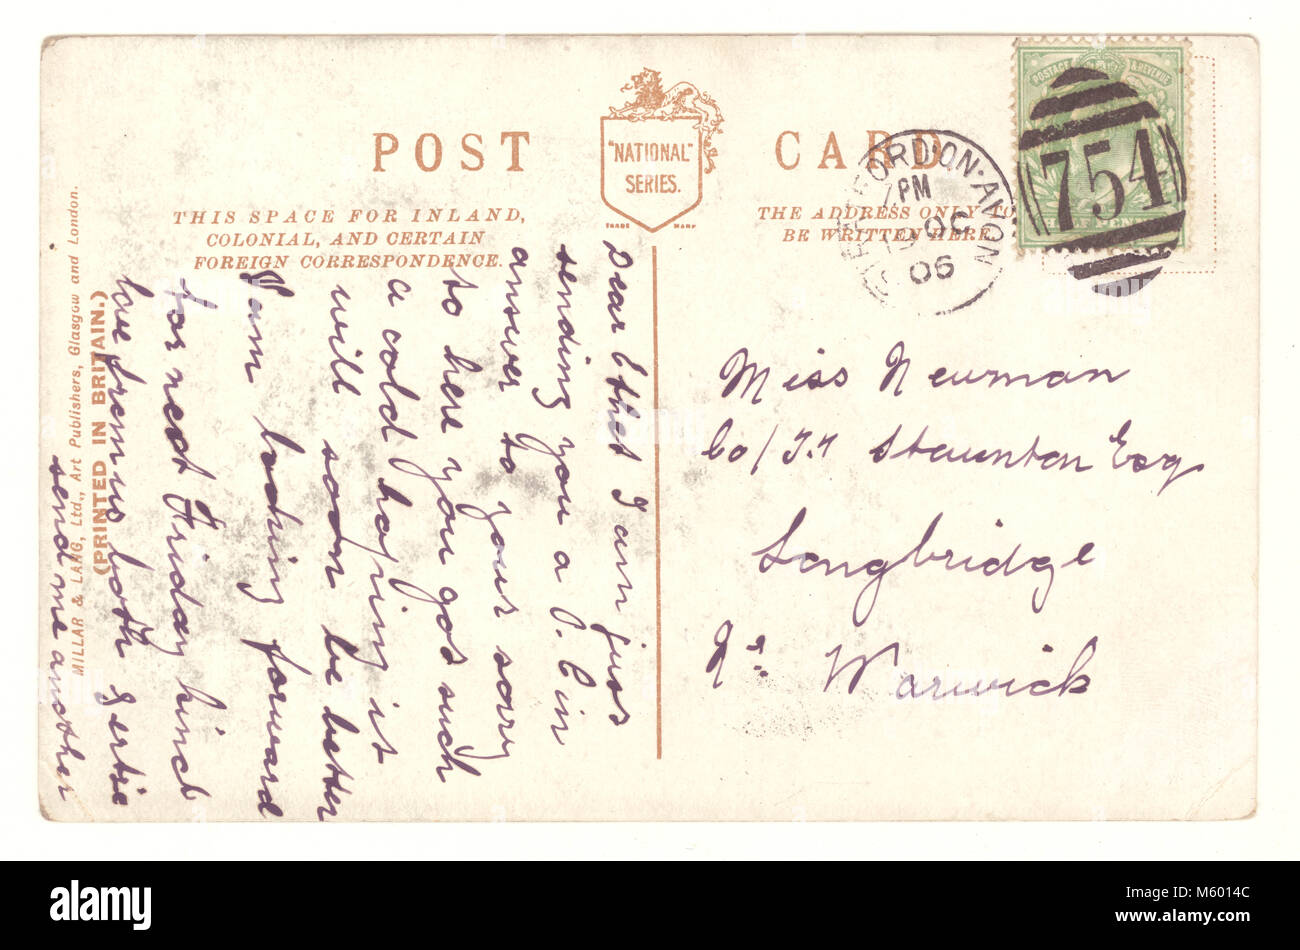 POST CARD
"NATIONAL"
SERIES.
TRADE MARK
THIS SPACE FOR INLAND,
COLONIAL, AND CERTAIN
FOREIGN CORRESPONDENCE.
THE ADDRESS ONLY TO
BE WRITTEN HERE.
POSTAGE & REVENUE
754
FORD·ON·AVON
7 PM
OC
06
Miss Newman
Co/ J.T Staunton Esq
Longbridge
Nr. Warwick
Dear Ethel I am just
sending you a P. C in
answer to your sorry
to here you got such
a cold hoping it
will soon be better
I am looking forward
for next Friday
love from us both Gertie
send me another
MILLAR & LANG, Ltd., Art Publishers, Glasgow and London.
(PRINTED IN BRITAIN.)
alamy
M6014C
www.alamy.com